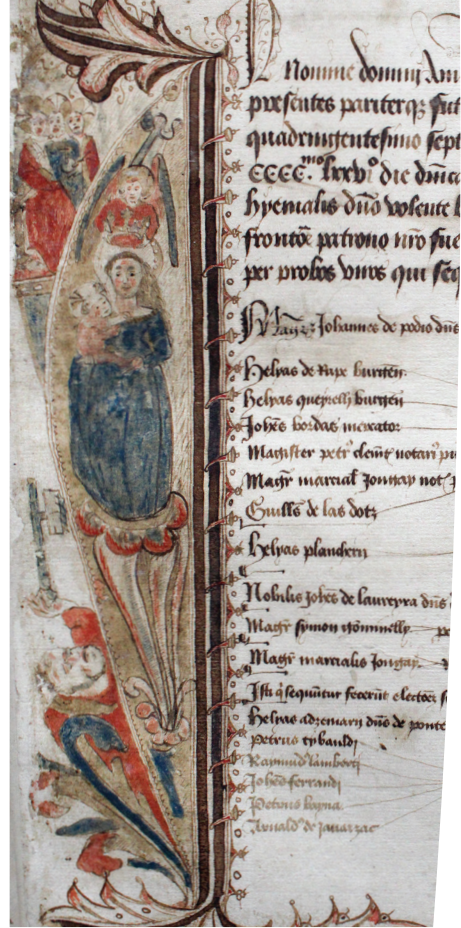 In Nomine domini Am
presentes pariterq; fut
quadringentesimo sept
CCCC.mo lxxvjo die dnica
hyemalis dño volente
frontõe patrono nrõ fue
per probos viros qui seq
Magr Johannes de podio dñs
Helyas de Rupe burgen
Helyas queyrelli burgen
Johes bordas mercator
Magister petr clemt notari
Magr marcial Jongay not
Guills de las dotz
Helyas plancheti
Nobilis Johes de laureyra dñs
Magr symon
Magr marcialis Jongay
Isti q sequntur fecerut electoes
Helyas adzemarii dñs de ponte
Petrus tybaudi
Raymund lamberti
Johes ferrandi
Petrus
Arnald de Jauarzac